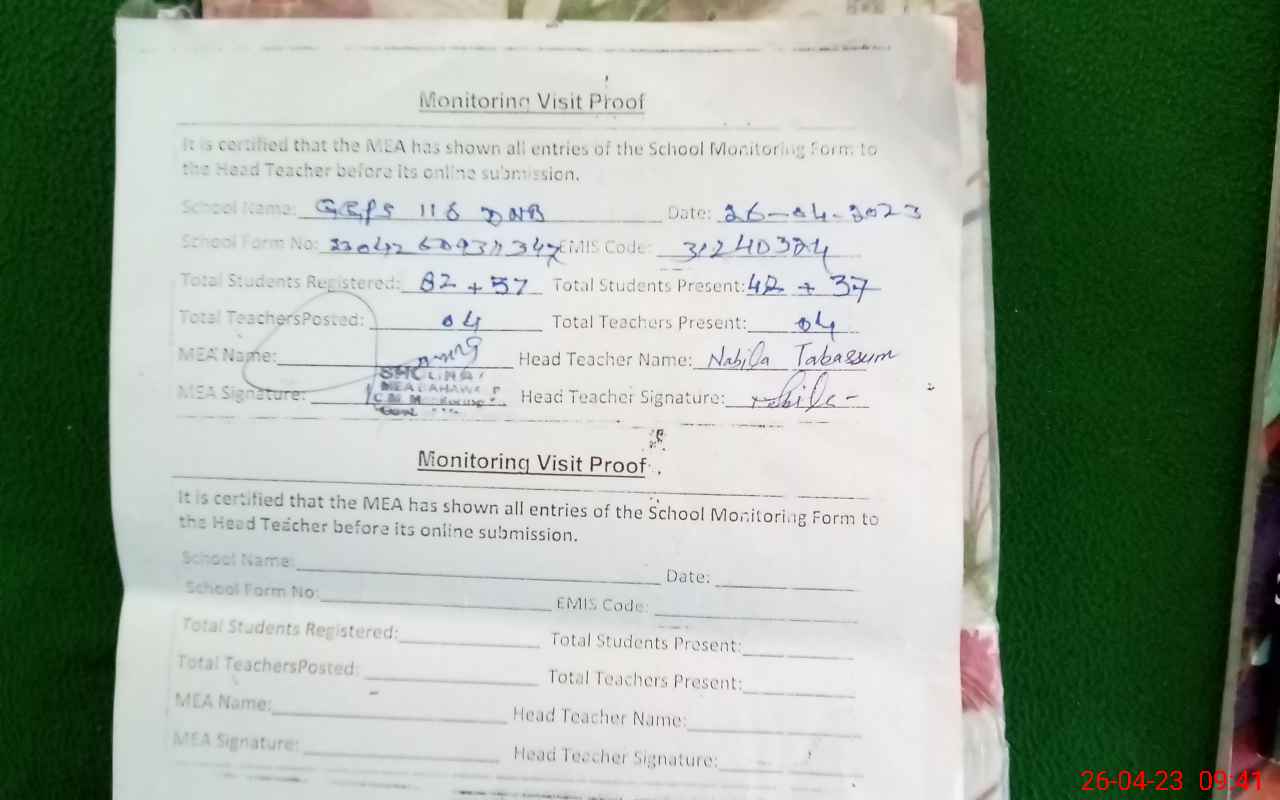 Monitoring Visit Proof
It is certified that the MEA has shown all entries of the School Monitoring Form to
the Head Teacher before its online submission.
School Name: GGPS 116 DNB Date: 26-04-2023
School Form No: EMIS Code: 31240324
Total Students Registered: 82 + 57 Total Students Present: 48 + 37
Total TeachersPosted: 04 Total Teachers Present: 04
MEA Name: Head Teacher Name: Nabila Tabassum
MEA Signature: Head Teacher Signature:
Monitoring Visit Proof
It is certified that the MEA has shown all entries of the School Monitoring Form to
the Head Teacher before its online submission.
School Name: Date:
School Form No: EMIS Code:
Total Students Registered: Total Students Present:
Total TeachersPosted: Total Teachers Present:
MEA Name: Head Teacher Name:
MEA Signature: Head Teacher Signature:
26-04-23 09:41